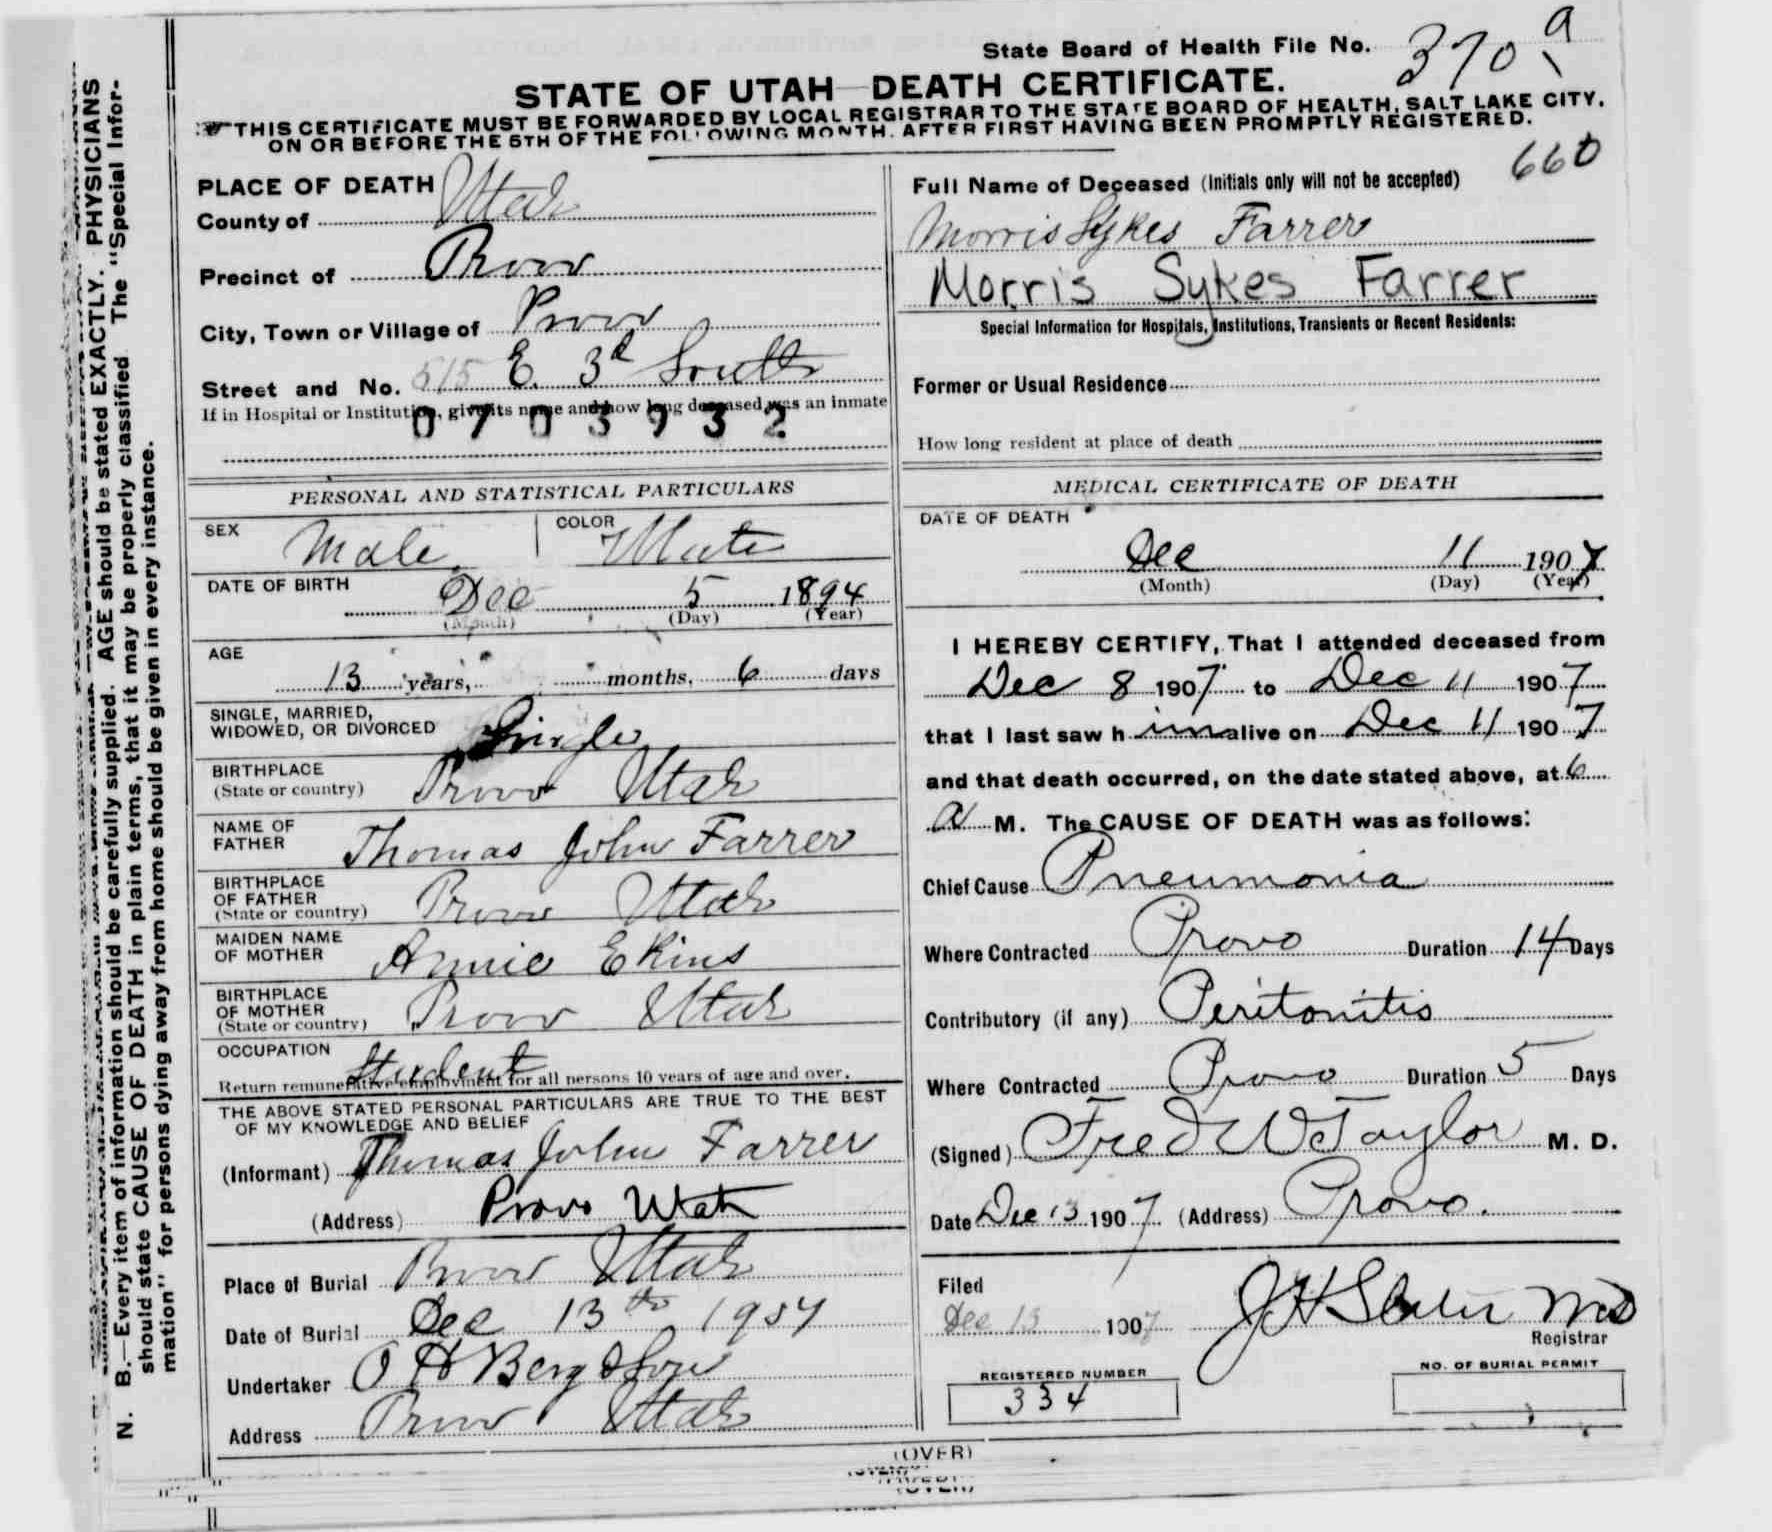 State Board of Health File No. 370 9
STATE OF UTAH—DEATH CERTIFICATE.
THIS CERTIFICATE MUST BE FORWARDED BY LOCAL REGISTRAR TO THE STATE BOARD OF HEALTH, SALT LAKE CITY,
ON OR BEFORE THE 5TH OF THE FOLLOWING MONTH, AFTER FIRST HAVING BEEN PROMPTLY REGISTERED.
660
PLACE OF DEATH
County of Utah
Precinct of Provo
City, Town or Village of Provo
Street and No. 515 E. 3d South
If in Hospital or Institution, give its name and how long deceased was an inmate
0703932
Full Name of Deceased (Initials only will not be accepted)
Morris Sykes Farrer
Morris Sykes Farrer
Special Information for Hospitals, Institutions, Transients or Recent Residents:
Former or Usual Residence
How long resident at place of death
PERSONAL AND STATISTICAL PARTICULARS
SEX Male COLOR White
DATE OF BIRTH Dec 5 1894
(Month) (Day) (Year)
AGE
13 years, months, 6 days
SINGLE, MARRIED,
WIDOWED, OR DIVORCED Single
BIRTHPLACE
(State or country) Provo Utah
NAME OF
FATHER Thomas John Farrer
BIRTHPLACE
OF FATHER
(State or country) Provo Utah
MAIDEN NAME
OF MOTHER Annie Ekins
BIRTHPLACE
OF MOTHER
(State or country) Provo Utah
OCCUPATION Student
Return remunerative employment for all persons 10 years of age and over.
THE ABOVE STATED PERSONAL PARTICULARS ARE TRUE TO THE BEST
OF MY KNOWLEDGE AND BELIEF
(Informant) Thomas John Farrer
(Address) Provo Utah
Place of Burial Provo Utah
Date of Burial Dec 13th 1907
Undertaker O H Berg & Son
Address Provo Utah
MEDICAL CERTIFICATE OF DEATH
DATE OF DEATH
Dec 11 1907
(Month) (Day) (Year)
I HEREBY CERTIFY, That I attended deceased from
Dec 8 1907 to Dec 11 1907
that I last saw h im alive on Dec 11 1907
and that death occurred, on the date stated above, at 6
a M. The CAUSE OF DEATH was as follows:
Chief Cause Pneumonia
Where Contracted Provo Duration 14 Days
Contributory (if any) Peritonitis
Where Contracted Provo Duration 5 Days
(Signed) Fred W Taylor M. D.
Date Dec 13 1907 (Address) Provo.
Filed
Dec 13 1907
Registrar
REGISTERED NUMBER
334
NO. OF BURIAL PERMIT
(OVER)
N. B.—Every item of information should be carefully supplied. AGE should be stated EXACTLY. PHYSICIANS
should state CAUSE OF DEATH in plain terms, that it may be properly classified The "Special Infor-
mation" for persons dying away from home should be given in every instance.